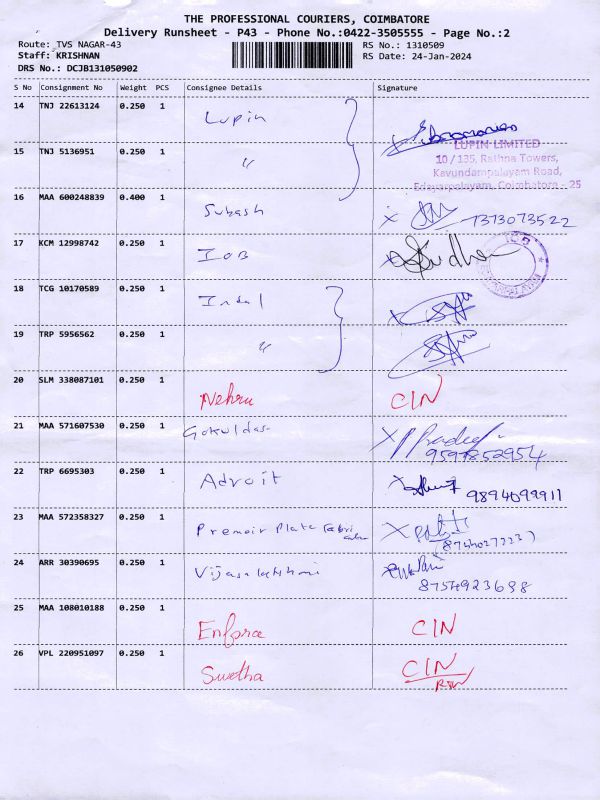 THE PROFESSIONAL COURIERS, COIMBATORE
Delivery Runsheet - P43 - Phone No.:0422-3505555 - Page No.:2
Route: TVS NAGAR-43 RS No.: 1310509
Staff: KRISHNAN RS Date: 24-Jan-2024
DRS No.: DCJB131050902
S No Consignment No Weight PCS Consignee Details Signature
14 TNJ 22613124 0.250 1 Lupin
LUPIN LIMITED
15 TNJ 5136951 0.250 1 "
10 / 135, Rathna Towers,
Kavundampalayam Road,
Edayarpalayam, Coimbatore - 25
16 MAA 600248839 0.400 1 Subash X 7373073522
17 KCM 12998742 0.250 1 IOB X Sudha
IOB
18 TCG 10170589 0.250 1 Indal X
19 TRP 5956562 0.250 1 " X
20 SLM 338087101 0.250 1 Nehru CIN
21 MAA 571607530 0.250 1 Gokuldas X Pradeep
9597852954
22 TRP 6695303 0.250 1 Advoit X 9894099911
23 MAA 572358327 0.250 1 Premoir Plate X
24 ARR 30390695 0.250 1 Vijayalakshmi X
8754923698
25 MAA 108010188 0.250 1 Enforce CIN
26 VPL 220951097 0.250 1 Swetha CIN